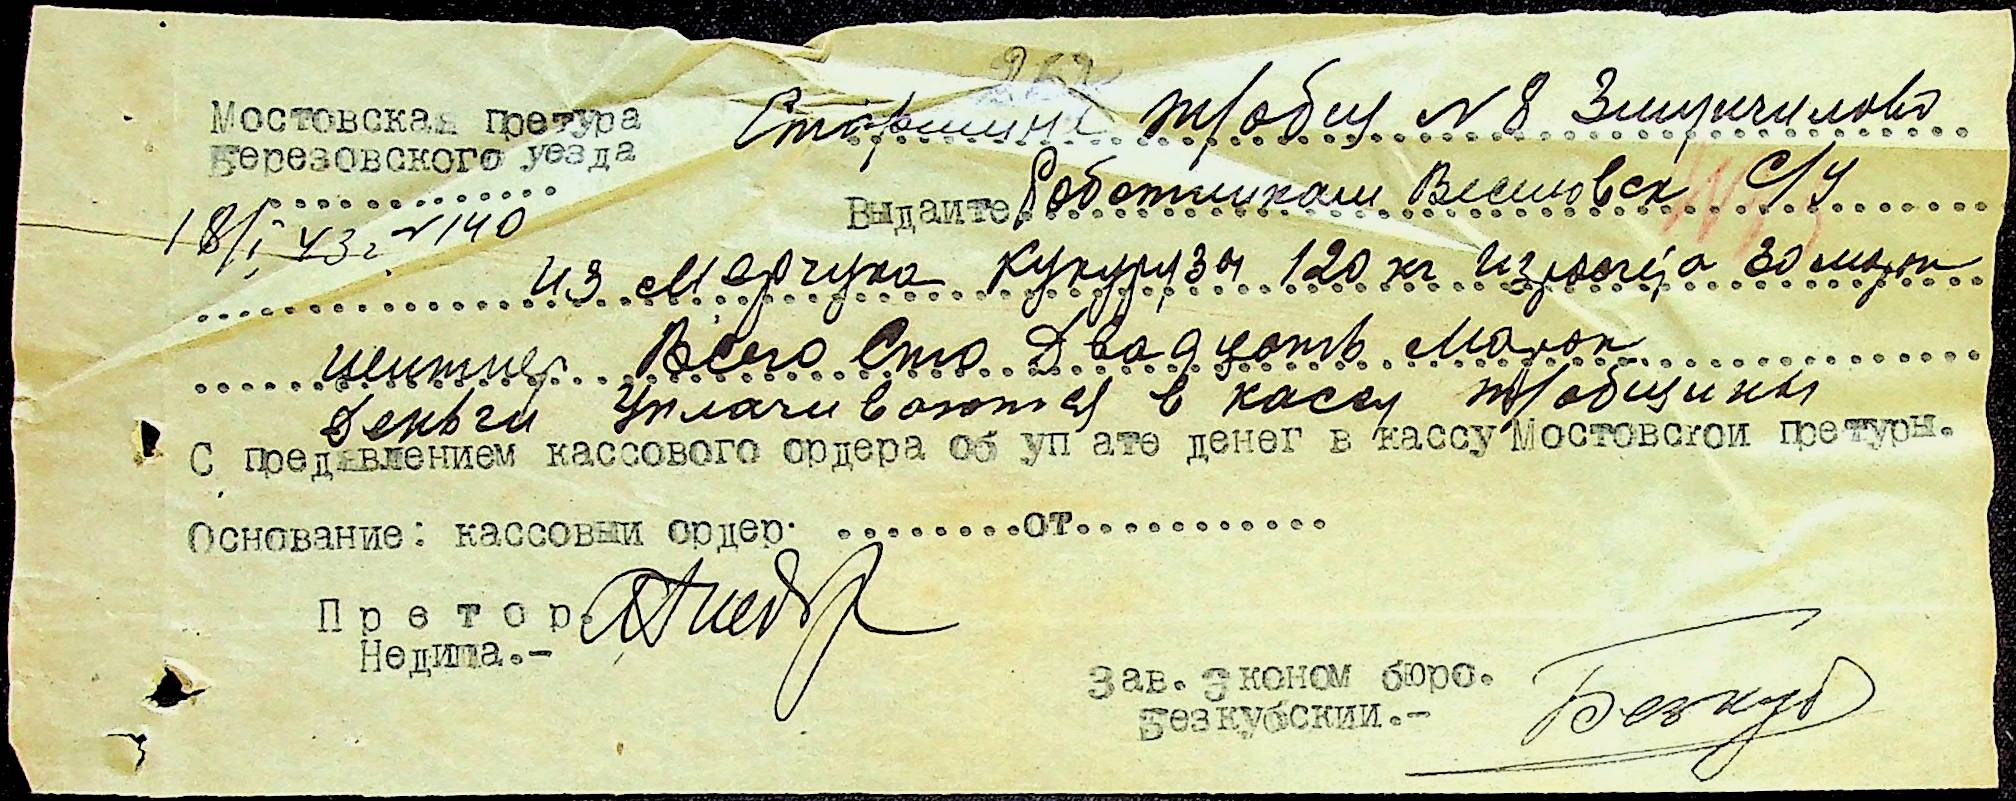 262
Мостовская претура
Березовского уезда
Старшине тр/общ N 8 Зищичилово
18/I 43 г. N 140
Выдайте Работникам Весиловск С/У
из Марчука кукурузы 120 кг из расчёта 30 марок
центнер Всего Сто Двадцать Марок
Деньги Уплачиваются в кассу тр/общины
С предявлением кассового ордера об уп ате денег в кассу Мостовской претуры.
Основание: кассовый ордер. .........от............
Претор.
Недипа.-
Зав. Эконом бюро.
Безкубский.-
Безкуб